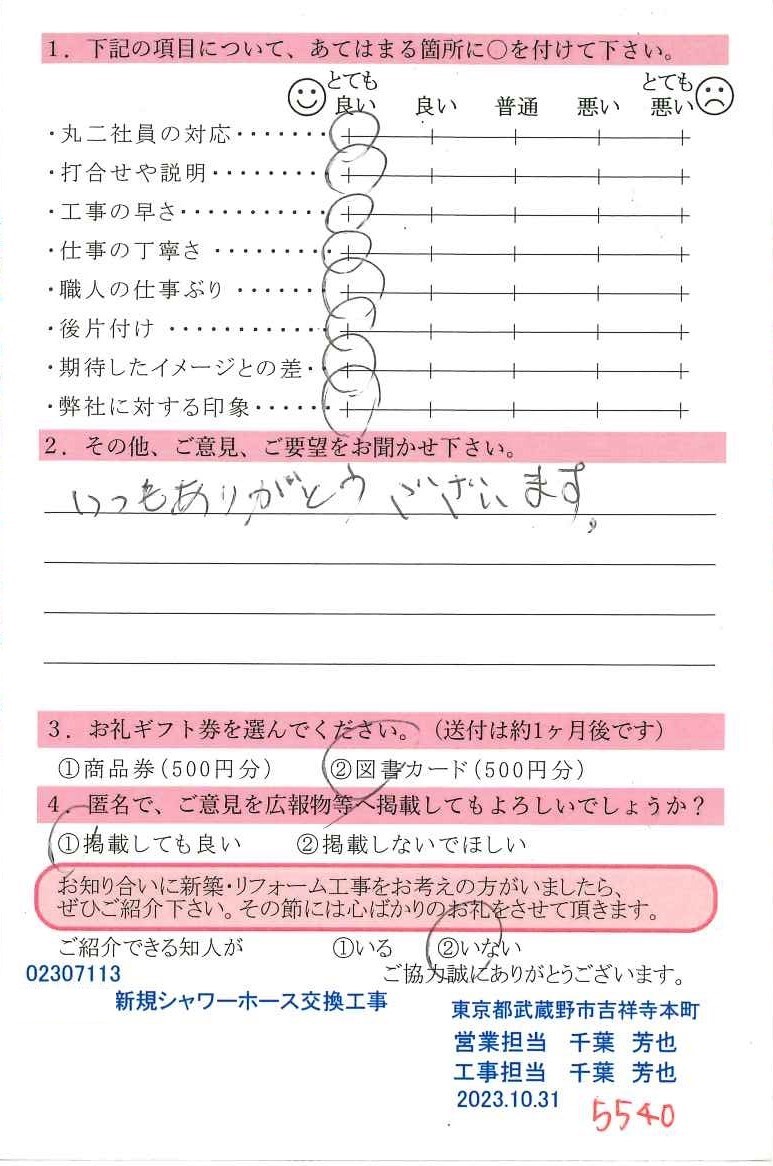 1．下記の項目について、あてはまる箇所に○を付けて下さい。
とても良い 良い 普通 悪い とても悪い
・丸二社員の対応・・・・・・
・打合せや説明・・・・・・・・
・工事の早さ・・・・・・・・・・
・仕事の丁寧さ ・・・・・・・・
・職人の仕事ぶり ・・・・・・
・後片付け ・・・・・・・・・・・
・期待したイメージとの差・・
・弊社に対する印象・・・・・
2．その他、ご意見、ご要望をお聞かせ下さい。
いつもありがとうございます。
3．お礼ギフト券を選んでください。（送付は約1ヶ月後です）
①商品券(500円分) ②図書カード(500円分)
4．匿名で、ご意見を広報物等へ掲載してもよろしいでしょうか？
①掲載しても良い ②掲載しないでほしい
お知り合いに新築・リフォーム工事をお考えの方がいましたら、
ぜひご紹介下さい。その節には心ばかりのお礼をさせて頂きます。
ご紹介できる知人が ①いる ②いない
ご協力誠にありがとうございます。
02307113
新規シャワーホース交換工事
東京都武蔵野市吉祥寺本町
営業担当 千葉 芳也
工事担当 千葉 芳也
2023.10.31
5540